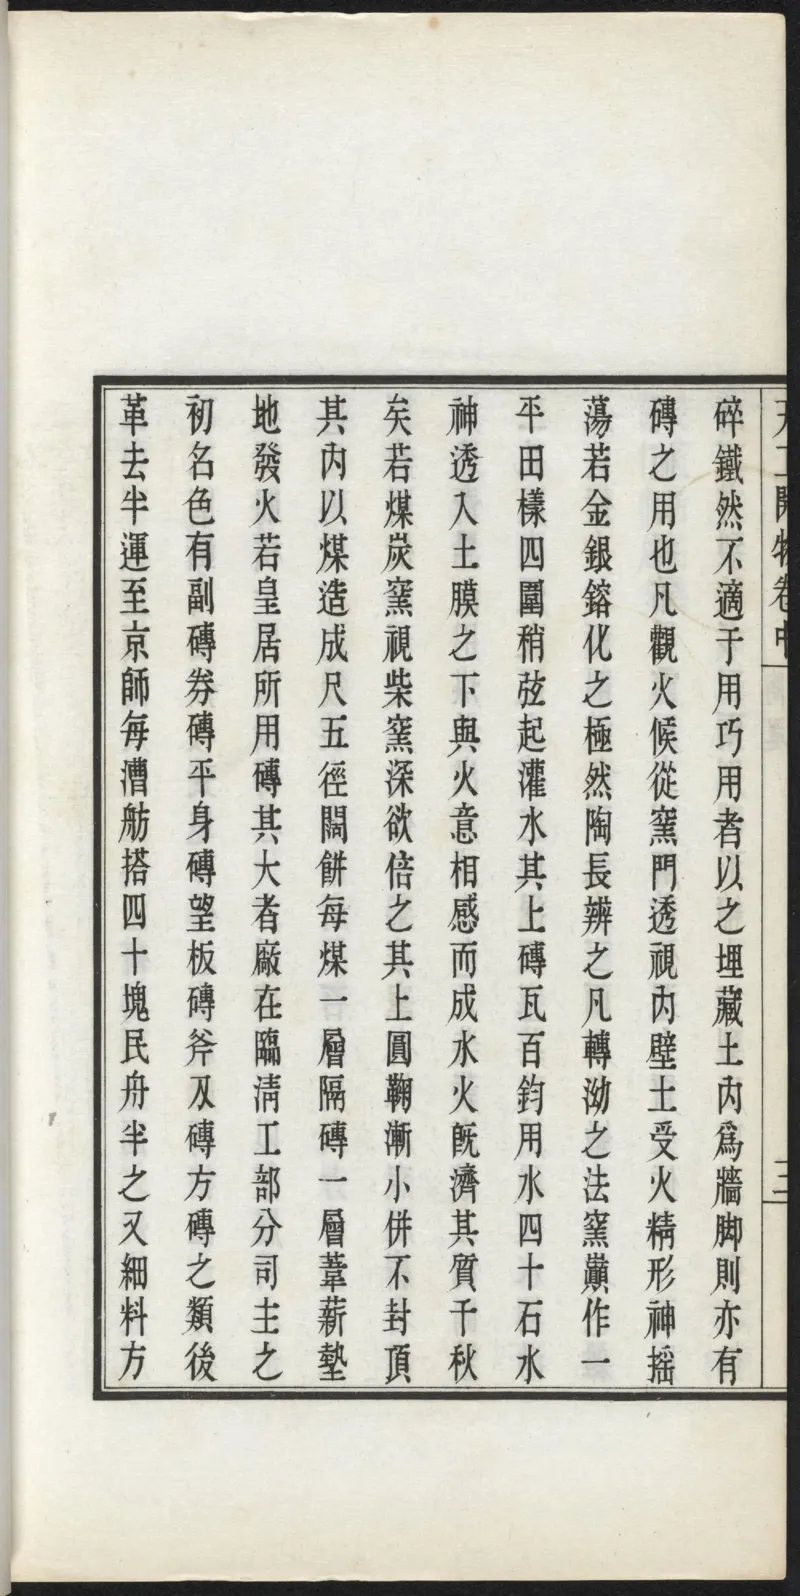 天工開物卷中
三
碎鐵然不適于用巧用者以之埋藏土内爲牆脚則亦有
磚之用也凡觀火候從窯門透視内壁土受火精形神摇
蕩若金銀鎔化之極然陶長辨之凡轉泑之法窯巓作一
平田樣四圍稍弦起灌水其上磚瓦百鈞用水四十石水
神透入土膜之下與火意相感而成水火旣濟其質千秋
矣若煤炭窯視柴窯深欲倍之其上圓鞠漸小併不封頂
其内以煤造成尺五徑闊餅每煤一層隔磚一層葦薪墊
地發火若皇居所用磚其大者廠在臨清工部分司主之
初名色有副磚券磚平身磚望板磚斧刄磚方磚之類後
革去半運至京師每漕舫搭四十塊民舟半之又細料方